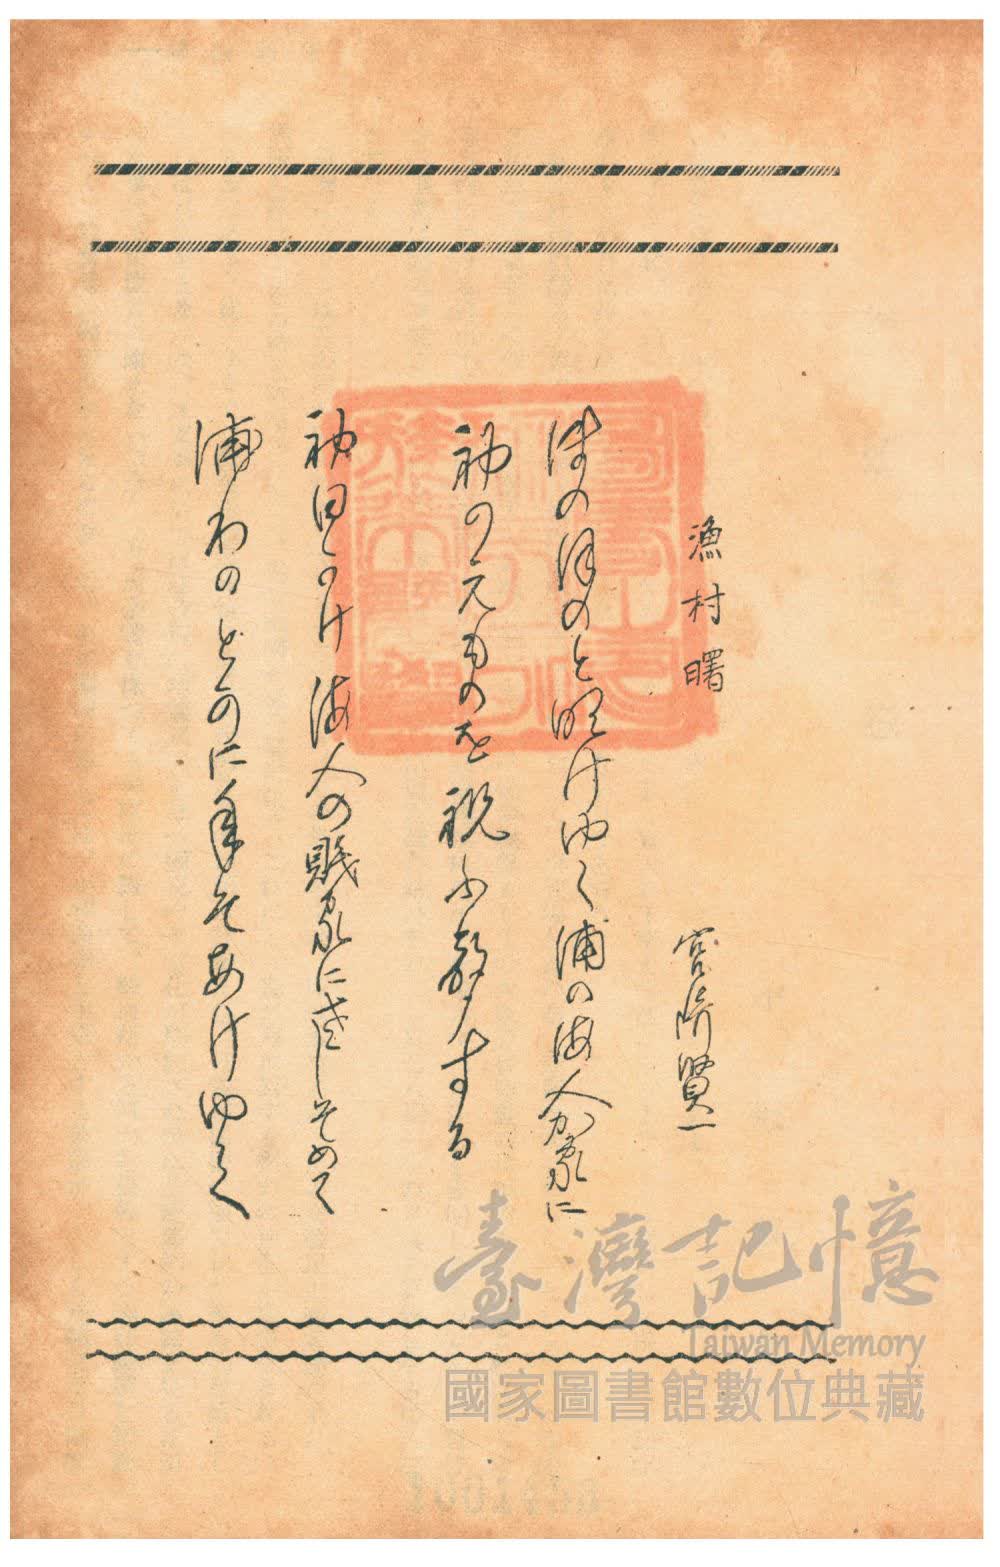 漁村曙
宮崎賢一
ほのほのと明けゆく浦の海人か家に
初のえものを祝ふ聲する
初日かけ海人の賤家にさしそめて
浦わのどかに年そあけゆく
臺灣記憶
Taiwan Memory
國家圖書館數位典藏